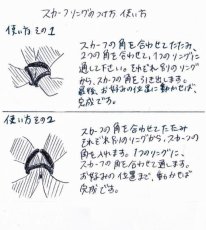 スカーフリングのつけ方 使い方
使い方 その1
スカーフの角を合わせてたたみ、
2つの角を合わせて、1つのリングに
通して下さい。それぞれ別のリング
から、スカーフの角を引き出します。
最後、お好みの位置に動かせば、
完成です。
使い方 その2
スカーフの角を合わせてたたみ
それぞれ別のリングから、スカーフの
角を入れます。1つのリングに、
スカーフの角を合わせて通します。
お好みの位置まで、動かせば
完成です。